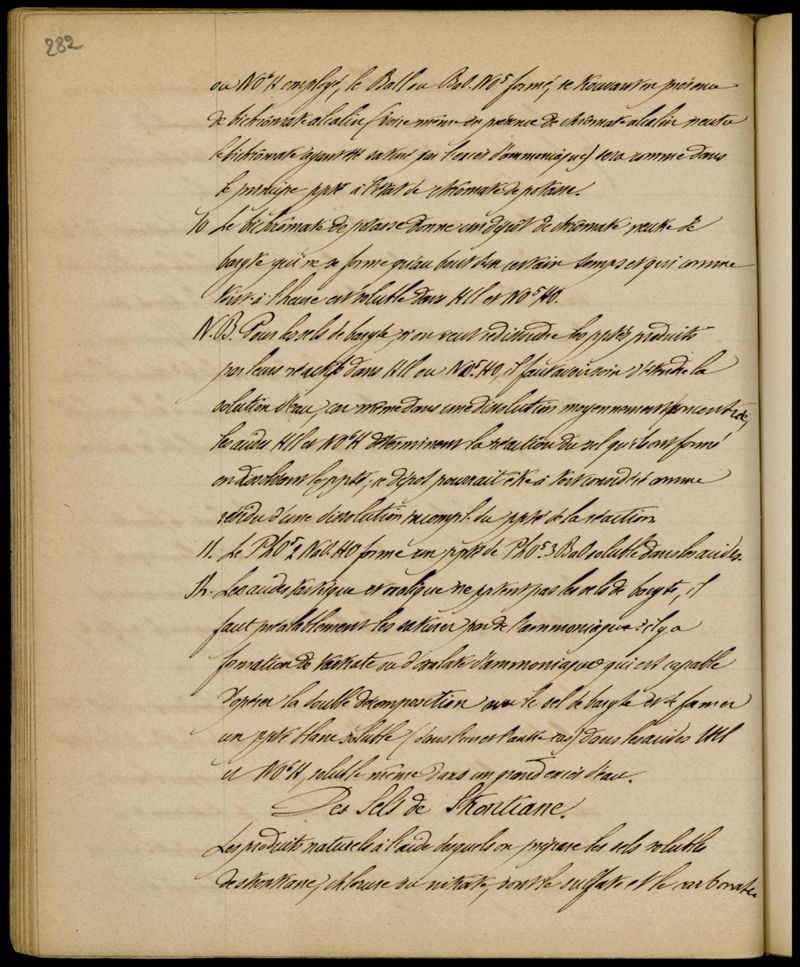 282
ou NO⁶H employé, le BaCl ou BaO.NO⁵ formé, se trouvant en présence
de bichrômate alcalin (voire même en présence de chrômate alcalin neutre
le bichrômate ayant été saturé par l'excès d'ammoniaque) sera comme dans
le principe ppté à l'état de chrômate de potasse.
10 Le bichrômate de potasse donne un dépôt de chrômate neutre de
baryte qui ne se forme qu'au bout d'un certain temps et qui comme
tout à l'heure est soluble dans HCl et NO⁵HO.
N.B. Pour les sels de baryte, si on veut redissoudre les pptés produits
par leurs réactifs dans HCl ou NO⁵HO, il faut avoir soin d'étendre la
solution d'eau, car même dans une dissolution moyennement concentrée,
les acides HCl et NO⁶H déterminent la réaction du sel qu'ils ont formé
en dissolvant le ppté; ce dépôt pourrait être à tort considéré comme
résidu d'une dissolution incomplte du ppté de la réaction
11. Le PhO⁵2NaO.HO forme un ppté de PhO⁵.3BaO soluble dans les acides.
12. Les acides tartrique et oxalique ne pptent pas les sels de baryte, il
faut préalablement les saturer par de l'ammoniaque: il y a
formation de tartrate ou d'oxalate d'ammoniaque qui est capable
d'opérer la double décomposition avec le sel de baryte et de former
un ppté blanc soluble (dans l'un et l'autre cas) dans les acides HCl
et NO⁶H, soluble même dans un grand excès d'eau.
Des Sels de Strontiane.
Les produits naturels à l'aide desquels on prépare les sels solubles
de strontiane, chlorure ou nitrate, sont le sulfate et le carbonate